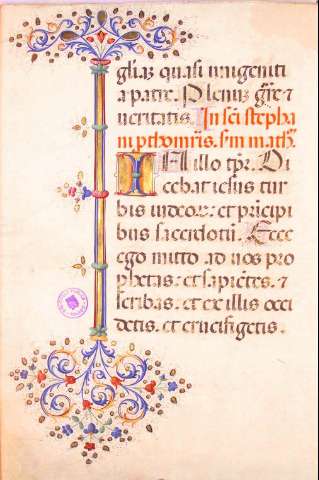 gliaz quasi unigeniti
a patre. Plenuz gr̃e ⁊
ueritatis. In sc̃i stepha
ni p̱thom̃ris. s̃m math̃.
IN illo tp̃r. Di
cebat iesus tur
bis iudeoꝝ: et p̃ncipi
bus sacerdotũ. Ecce
ego mitto ad uos pro
phetas: et sapiẽtes. ⁊
scribas. et ex illis occi
detis. et crucifigetis.